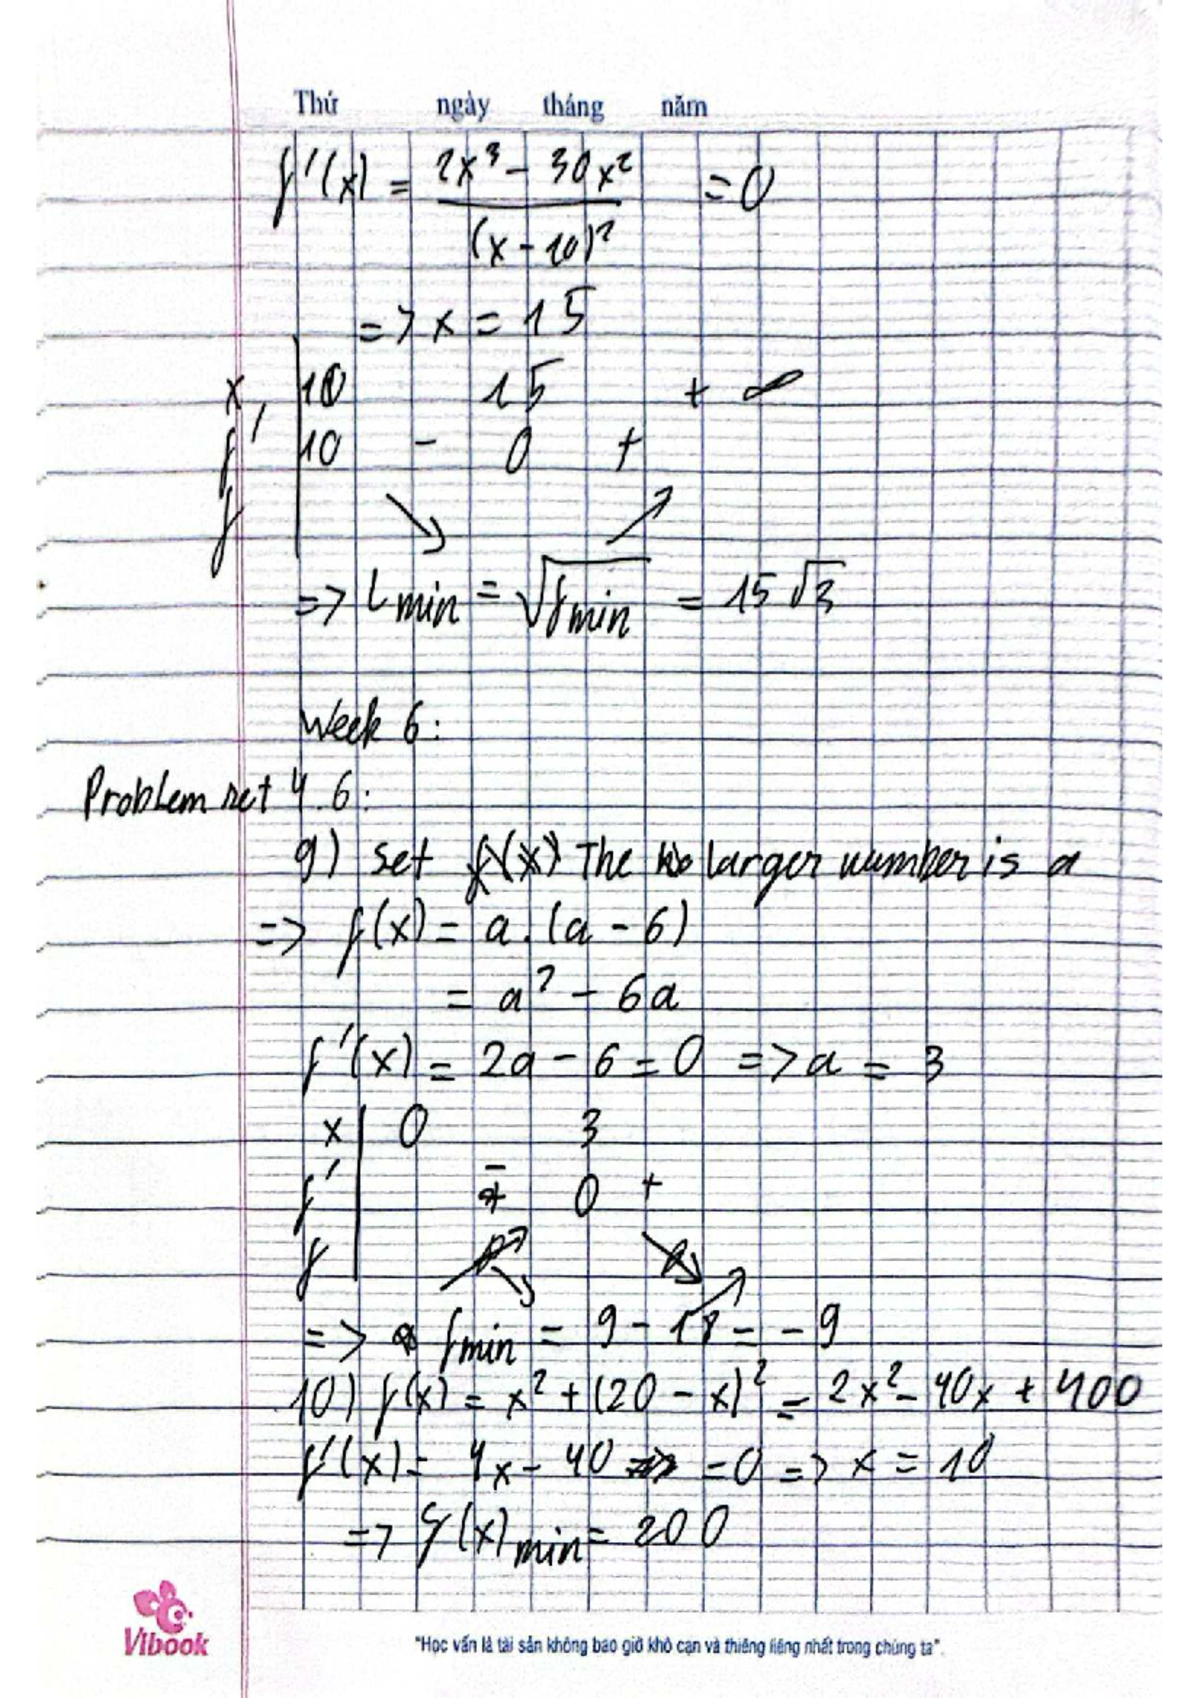 Thứ ngày tháng năm
f'(x) = (2x³ - 30x²)/(x - 10)² = 0
=> x = 15
x | 10 15 + ∞
f' | 10 - 0 +
f | ↘ ↗
=> Lmin = √fmin = 15√3
Week 6:
Problem set 4.6:
9) set The larger number is a
=> f(x) = a.(a - 6)
= a² - 6a
f'(x) = 2a - 6 = 0 => a = 3
x | 0 3
f' | - 0 +
f | ↘ ↗
=> fmin = 9 - 18 = -9
10) f(x) = x² + (20 - x)² = 2x² - 40x + 400
f'(x) = 4x - 40 = 0 => x = 10
=> f(x)min = 200
Vibook
"Học vấn là tài sản không bao giờ khô cạn và thiêng liêng nhất trong chúng ta".